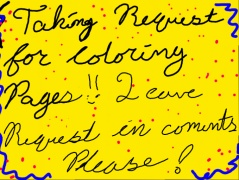 Taking Request
for coloring
Pages!! Leave
Request in coments
Please!